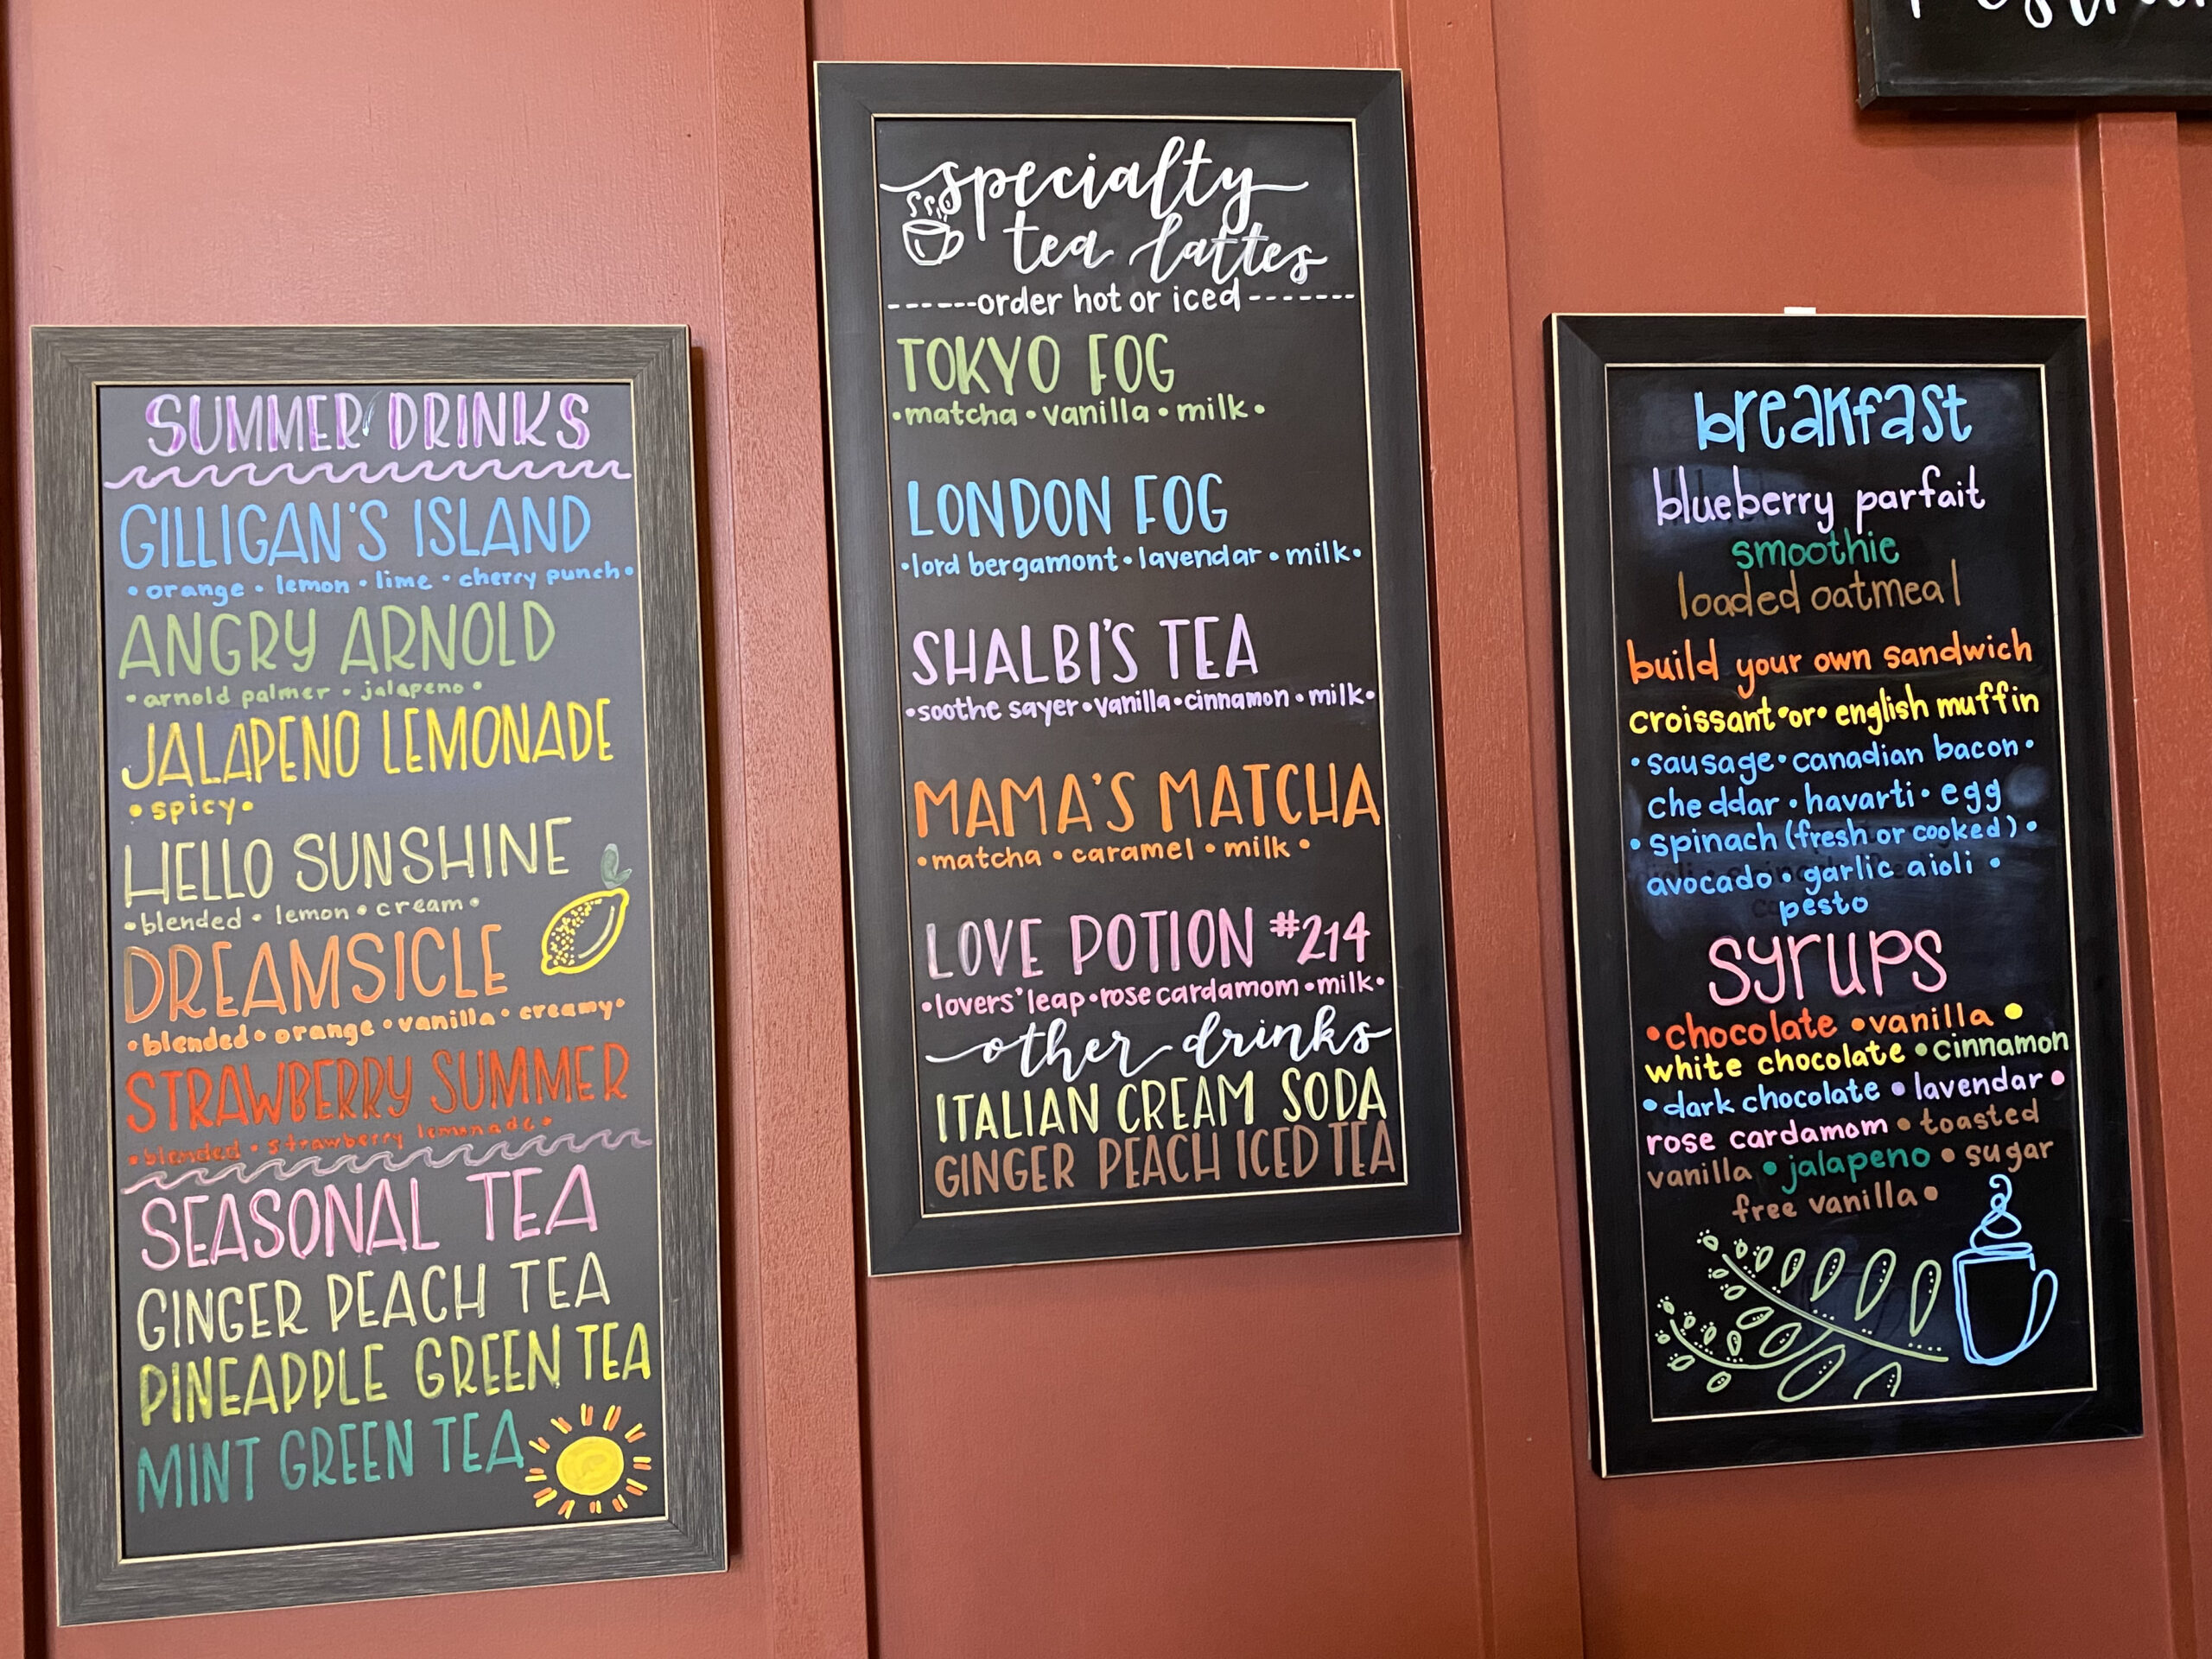 SUMMER DRINKS
GILLIGAN'S ISLAND
• orange • lemon • lime • cherry punch •
ANGRY ARNOLD
• arnold palmer • jalapeno •
JALAPENO LEMONADE
• spicy •
HELLO SUNSHINE
• blended • lemon • cream •
DREAMSICLE
• blended • orange • vanilla • creamy •
STRAWBERRY SUMMER
• blended • strawberry lemonade •
SEASONAL TEA
GINGER PEACH TEA
PINEAPPLE GREEN TEA
MINT GREEN TEA
specialty
tea lattes
------order hot or iced-------
TOKYO FOG
• matcha • vanilla • milk •
LONDON FOG
• lord bergamont • lavendar • milk •
SHALBI'S TEA
• soothe sayer • vanilla • cinnamon • milk •
MAMA'S MATCHA
• matcha • caramel • milk •
LOVE POTION #214
• lovers' leap • rose cardamom • milk •
other drinks
ITALIAN CREAM SODA
GINGER PEACH ICED TEA
breakfast
blueberry parfait
smoothie
loaded oatmeal
build your own sandwich
croissant • or • english muffin
• sausage • canadian bacon •
cheddar • havarti • egg
• spinach (fresh or cooked) •
avocado • garlic aioli •
pesto
syrups
• chocolate • vanilla •
white chocolate • cinnamon
• dark chocolate • lavendar •
rose cardamom • toasted
vanilla • jalapeno • sugar
free vanilla •